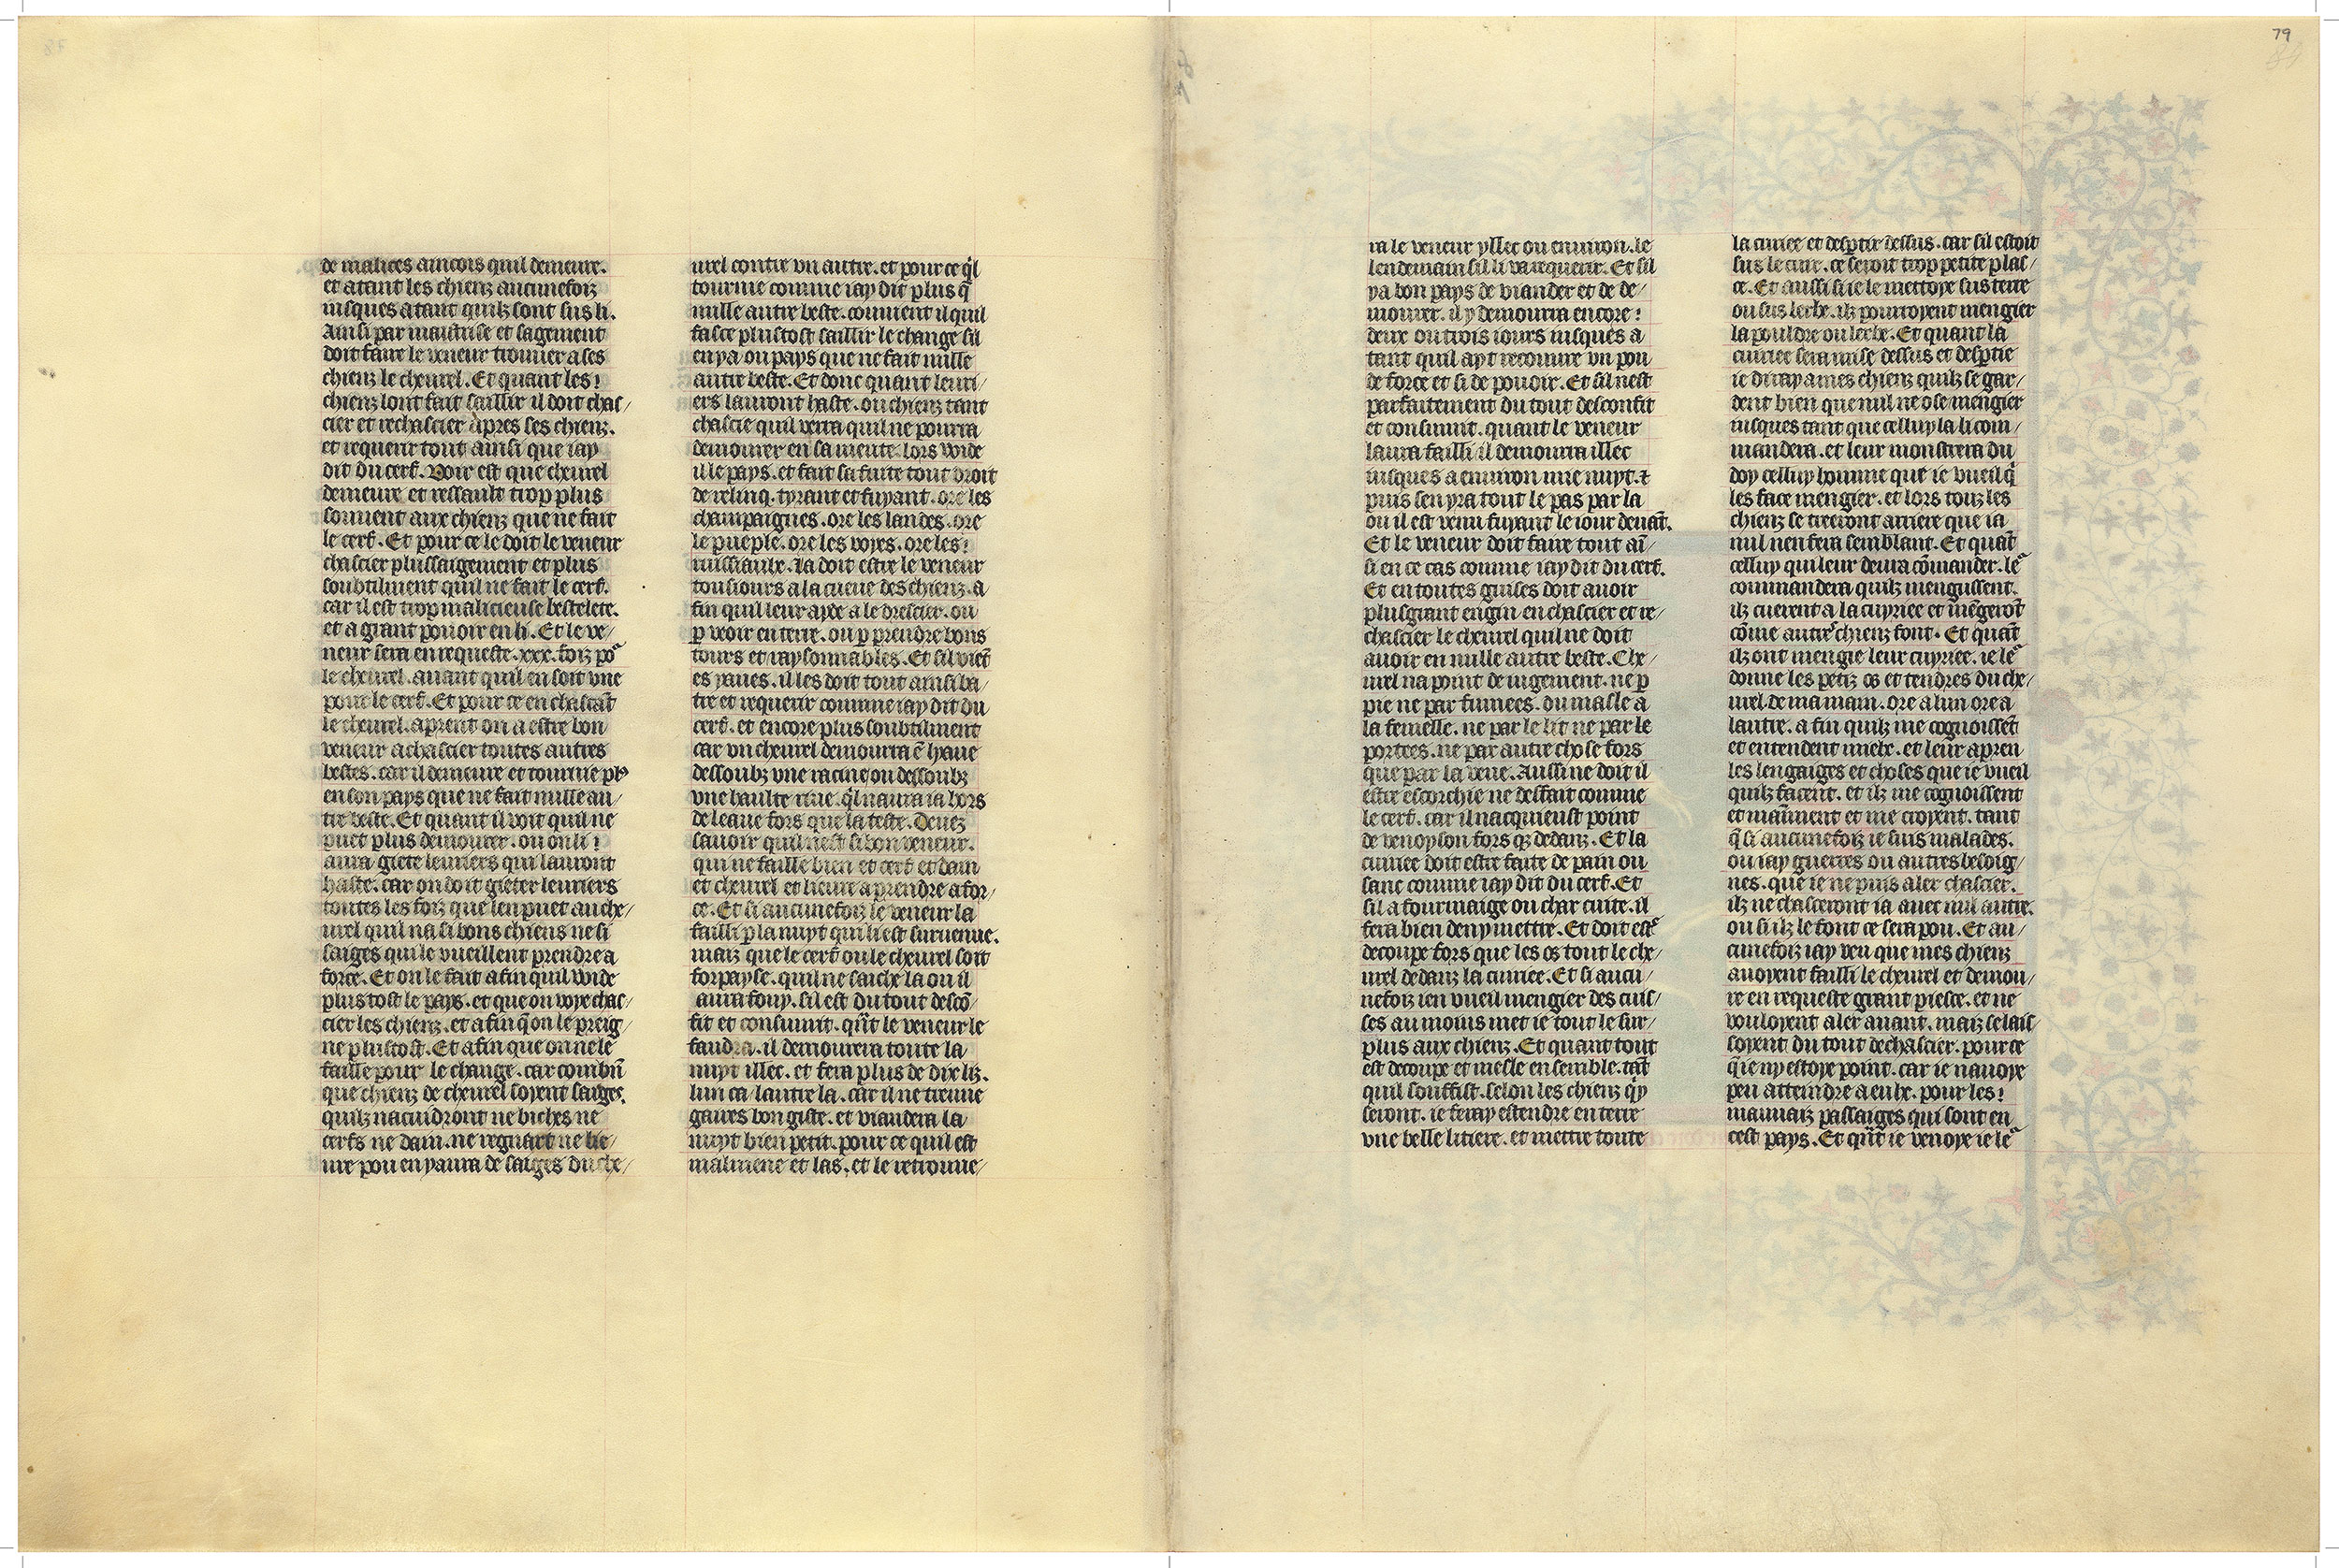 de malices aincois quil demeure.
et atant les chienz aucunefoiz
iusques a tant quilz sont sus li.
Ainsi par maistrise et sagement
doit faire le veneur trouuer a ses
chienz le cheurel. Et quant les
chienz lont fait saillir il doit chas/
cier et rechascier apres ses chienz.
et requerir tout ainsi que iay
dit du cerf. Voir est que cheurel
demeure et ressault trop plus
souuent aux chienz que ne fait
le cerf. Et pour ce le doit le veneur
chascier plussaigement et plus
soubtilment quil ne fait le cerf.
car il est trop malicieuse bestelete.
et a grant pouoir en li. Et le ve/
neur sera en requeste .xxx. foiz po᷑
le cheurel. auant quil en soit vne
pour le cerf. Et pour ce en chascāt
le cheurel. aprent on a estre bon
veneur a chascier toutes autres
bestes. car il demeure et tournie plꝰ
en son pays que ne fait nulle au/
tre beste. Et quant il voit quil ne
puet plus demourer. ou on li
aura giete leuriers qui lauront
haste. car on doit gieter leuriers
toutes les foiz que len puet au che/
urel quil na si bons chiens ne si
saiges qui le vueillent prendre a
force. Et on le fait afin quil wide
plus tost le pays. et que on voye chas/
cier les chienz. et a fin q̄ on le preig/
ne plustost. Et afin que on ne le
faille pour le change. car combiē
que chienz de cheurel soyent saiges.
quilz nacuidront ne biches ne
cerfs ne dain. ne regnart ne lie/
ure pou en yaura de saiges du che/
urel contre vn autre. et pour ce q̄l
tournie comme iay dit plus q̄
nulle autre beste. conuient il quil
fasce plustost saillir le change sil
en ya ou pays que ne fait nulle
autre beste. Et donc quant leuri/
ers lauront haste. ou chienz tant
chascie quil verra quil ne pourra
demourer en sa meute. lors wide
il le pays. et fait sa fuite tout droit
de relinq. tyrant et fuyant. ore les
champaignes. ore les landes. ore
le pueple. ore les voyes. ore les
ruissiaulx. La doit estre le veneur
tousiours a la cueue des chienz. a
fin quil leur ayde a le drescier. ou
ꝑ veoir en terre. ou ꝑ prendre bons
tours et raysonnables. Et sil viēt
es yaues. il les doit tout ainsi ba/
tre et requerir comme iay dit du
cerf. et encore plus soubtilment
car vn cheurel demourra ē lyaue
dessoubz vne racine ou dessoubz
vne haulte riue. q̄l naura ia hors
de leaue fors que la teste. Deuez
sauoir quil nest si bon veneur.
qui ne faille bien et cerf et dain
et cheurel et lieure a prendre a for/
ce. Et si aucunefoiz le veneur la
failli ꝑ la nuyt qui li est suruenue.
maiz que le cerf ou le cheurel soit
forpayse. quil ne saiche la ou il
aura fouy. sil est du tout descō/
fit et consuiuit. qūt le veneur le
faudra. il demourera toute la
nuyt illec. et fera plus de dix liz.
lun ca/ lautre la. car il ne treuue
gaires bon giste. et viandera la
nuyt bien petit. pour ce quil est
malmene et las. et le retrouue/
ra le veneur yllec ou enuiron. le
lendemain sil li va requerir. Et sil
ya bon pays de viander et de de/
mourer. il y demourra encore
deux ou trois iours iusques a
tant quil ayt recouure vn pou
de force et si de pouoir. Et sil nest
parfaitement du tout desconfit
et consuiuit. quant le veneur
laura failli il demourra illec
iusques a enuiron mie nuyt. ⁊
puis sen yra tout le pas par la
ou il est venu fuyant le iour deuāt.
Et le veneur doit faire tout aī/
si en ce cas comme iay dit du cerf.
Et en toutes guises doit auoir
plusgrant engin en chascier et re/
chascier le cheurel quil ne doit
auoir en nulle autre beste. Che/
urel na point de iugement. ne ꝑ
pie ne par fumees. du masle a
la femelle. ne par le lit ne par le
portees. ne par autre chose fors
que par la veue. Aussi ne doit il
estre escorchie ne desfait comme
le cerf. car il nacquieust point
de venoyson fors qz dedanz. Et la
cuiriee doit estre faite de pain ou
sanc comme iay dit du cerf. Et
sil a fourmaige ou char cuite. il
fera bien deny mettre. Et doit est᷑
decoupe fors que les os tout le che/
urel dedanz la cuiriee. Et si aucu/
nefoiz ien vueil mengier des cuis/
ses au moins met ie tout le sur/
plus aux chienz. Et quant tout
est decoupe et mesle ensemble. tāt
quil souffist. selon les chienz q̄y
seront. ie feray estendre en terre
vne belle litiere. et mettre toute
la cuiriee et desptir dessus. car sil estoit
sus le cuir. ce seroit trop petite plas/
ce. Et aussi si ie le mettoye sus terre
ou sus lerbe. ilz pourroyent mengier
la pouldre ou lerbe. Et quant la
cuiriee sera mise dessus et desptie
ie diray a mes chienz quilz se gar/
dent bien que nul ne ose mengier
iusques tant que celluy la li com/
mandera. et leur monstrera du
doy celluy homme qui ie vueil q̄
les face mengier. et lors touz les
chienz se treront arriere que ia
nul nen fera semblant. Et quāt
celluy qui leur deura cōmander. le᷑
commandera quilz mengussent.
ilz cuerent a la cuyriee et mēgerōt
cōme autre᷒ chienz font. Et quāt
ilz ont mengie leur cuyriee. ie le᷑
donne les petiz os et tendres du che/
urel. de ma main. ore a lun ore a
lautre. a fin quilz me cognoissēt
et entendent miex. et leur apren
les lengaiges et choses que ie vueil
quilz facent. et ilz me cognoissent
et maīment et me croyent. tant
q̄ si aucunefoiz ie suis malades.
ou iay guerres ou autres besoig/
nes. que ie ne puis aler chascier.
ilz ne chasceront ia auec nul autre.
ou si ilz le font ce sera pou. Et au/
cunefoiz iay veu que mes chienz
auoyent failli le cheurel et demou/
re en requeste grant piesce. et ne
vouloyent aler auant. maiz se lais/
soyent du tout de chascier. pour ce
q̄ ie ny estoye point. car ie nauoye
peu atteindre a eulx. pour les
mauuaiz passaiges qui sont en
cest pays. Et qūt ie venoye ie le᷑
79